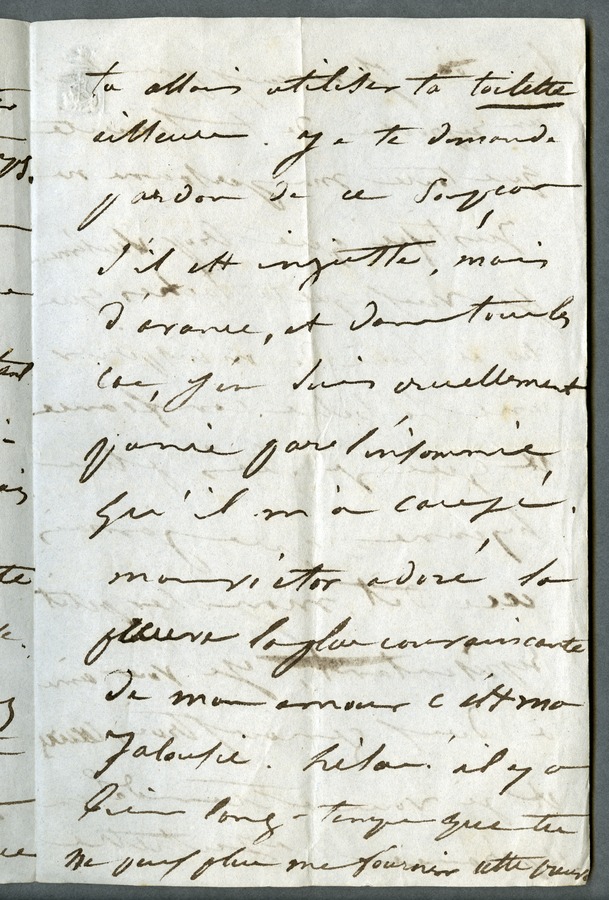 tu allais utiliser ta toilette
ailleurs. Je te demande
pardon de ce soupçon
s'il est injuste, mais
d'avance, et dans tous les
cas, j'en suis cruellement
punie par l'insomnie
qu'il m'a causé.
mon victor adoré, la
preuve la plus convaincante
de mon amour c'est ma
jalousie. hélas! il y a
bien long-temps que tu
ne peux plus me fournir cette preuve